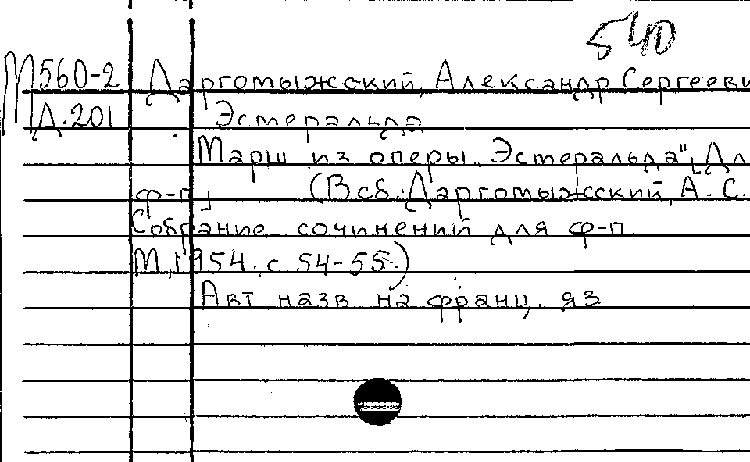 540
М560-2 Даргомыжский, Александр Сергееви
Д.201 Эсмеральда
Марш из оперы "Эсмеральда", [Дл
ф-п] (В сб.: Даргомыжский, А. С.
Собрание сочинений для ф-п
М., 1954. с 54-55.)
Авт назв на франц. яз